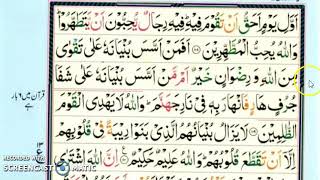 اَوَّلِ يَوْمٍ اَحَقُّ اَنْ تَقُوْمَ فِيْهِ فِيْهِ رِجَالٌ يُّحِبُّوْنَ اَنْ يَّتَطَهَّرُوْا
وَاللّٰهُ يُحِبُّ الْمُطَّهِّرِيْنَ ۝ اَفَمَنْ اَسَّسَ بُنْيَانَهٗ عَلٰى تَقْوٰى
مِنَ اللّٰهِ وَ رِضْوَانٍ خَيْرٌ اَمْ مَّنْ اَسَّسَ بُنْيَانَهٗ عَلٰى شَفَا
جُرُفٍ هَارٍ فَانْهَارَ بِهٖ فِيْ نَارِ جَهَنَّمَ وَاللّٰهُ لَا يَهْدِى الْقَوْمَ
الظّٰلِمِيْنَ ۝ لَا يَزَالُ بُنْيَانُهُمُ الَّذِيْ بَنَوْا رِيْبَةً فِيْ قُلُوْبِهِمْ
اِلَّاۤ اَنْ تَقَطَّعَ قُلُوْبُهُمْ وَاللّٰهُ عَلِيْمٌ حَكِيْمٌ ۝ اِنَّ اللّٰهَ اشْتَرٰى
قرآن میں ۶ بار
ہے
۱۳
RECORDED WITH
SCREENCAST MATIC